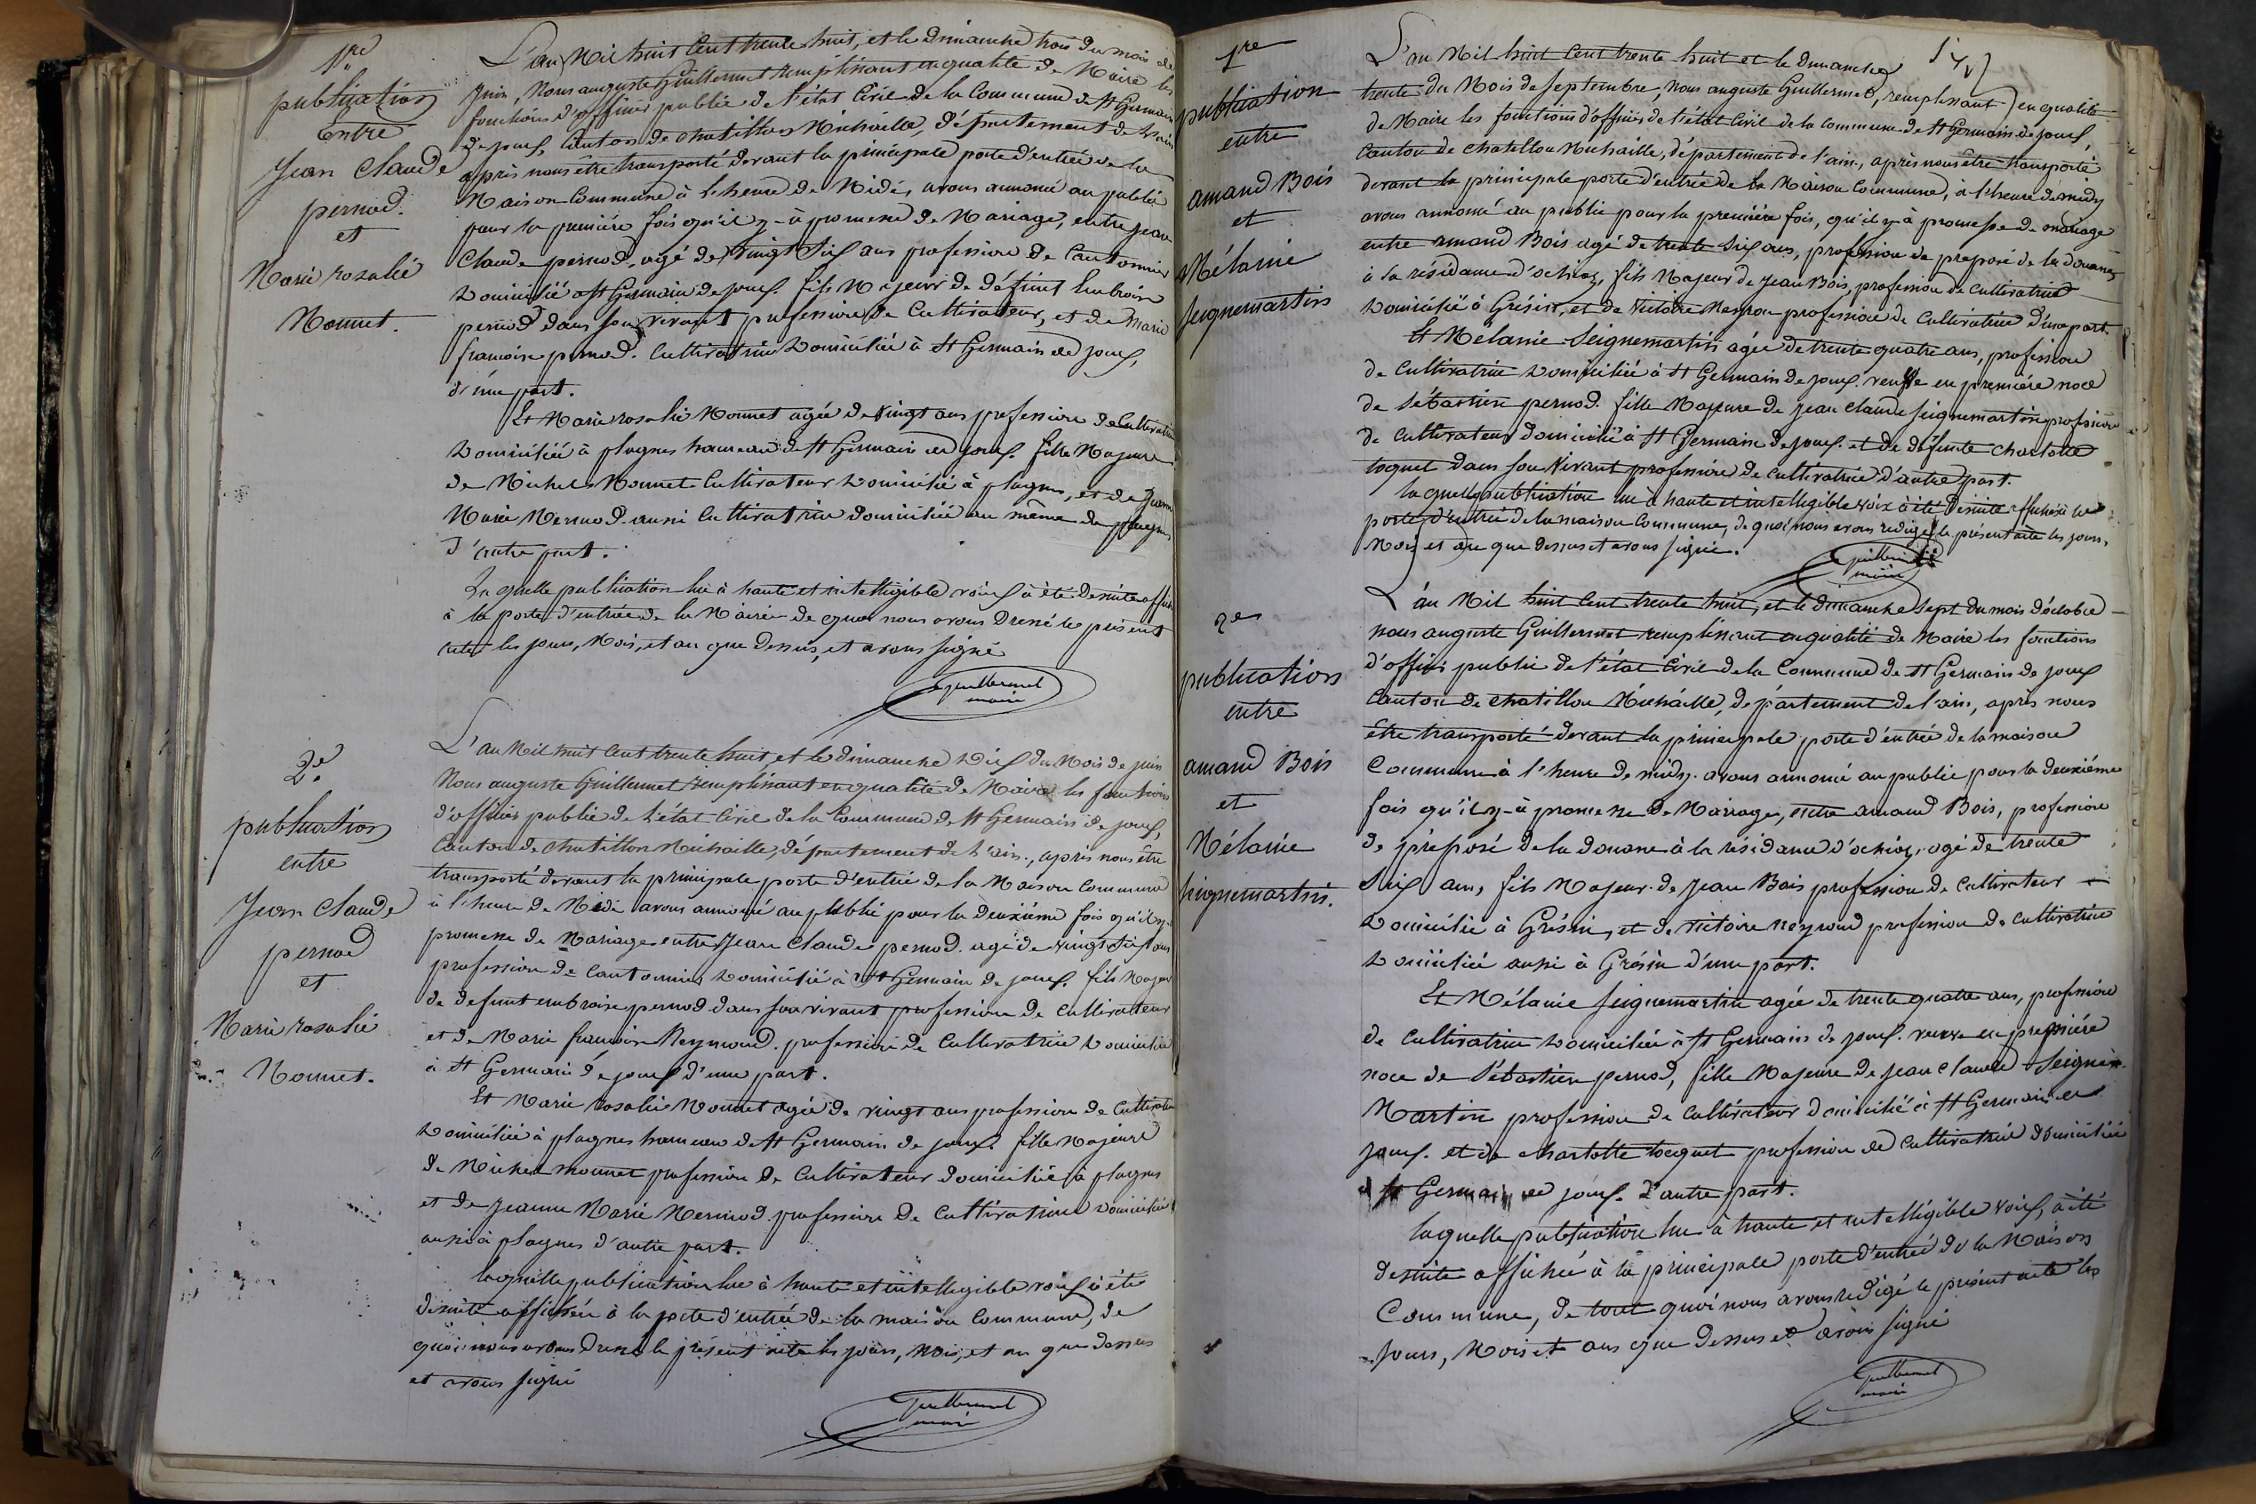 1re
publication
Entre
Jean Claude
pernod.
et
Marie rosalie
Monnet.
L'an Mil huit Cent trente huit, et le dimanche trois du mois de
Juin, Nous auguste Guillermet remplissant en qualité de Maire les
fonctions d'officier public de l'état Civil de la Commune de St Germain
de joux, Canton de chatillon Michaille, département de l'ain
après nous être transporté devant la principale porte d'entrée de la
Maison Commune à l'heure de Midi, avons annoncé au public
pour la première fois qu'il y-à promesse de Mariage, entre jean
Claude pernod, agé de vingt Six ans profession de Cantonnier
Domicilié a St Germain de joux. fils Majeur de défunt Embroise
pernod dans son vivant profession de Cultivateur, et de Marie
françoise pernod. Cultivatrice Domiciliée à St Germain de joux,
d'une part.
Et Marie rosalie Monnet agée de vingt ans profession de Cultivatrice
Domiciliée à plagnes hameau de St Germain de joux. fille Majeure
de Michel Monnet Cultivateur Domicilié à plagnes, et de jeanne
Marie Mermod. aussi Cultivatrice domiciliée au même de plagnes
D'autre part.
La quelle publication lue à haute et intelligible voix à été Desuite affichée
à la porte d'entrée de la Mairie de quoi nous avons Dressé le présent
acte les jours, Mois, et an que Dessus, et avons signé
Guillermet
maire
2e
publication
entre
Jean Claude
pernod
et
Marie rosalie
Monnet.
L'an Mil huit Cent trente huit et le dimanche Dix du Mois de juin
Nous auguste Guillermet remplissant en qualité de Maire les fonctions
d'officier public de l'état Civil de la Commune de St Germain de joux,
Canton de chatillon Michaille, département de l'ain, après nous être
transporté devant la principale porte d'entrée de la Maison Commune
à l'heure de Midi avons annoncé au public pour la deuxième fois qu'il y-
promesse de Mariage entre Jean Claude pernod. agé de vingt Six ans
profession de Cantonnier Domicilié à St Germain de joux. fils Majeur
de defunt embroise pernod dans son vivant profession de Cultivateur
et de Marie françoise Reymond. profession de Cultivatrice Domiciliée
à St Germain de joux d'une part.
Et Marie rosalie Monnet agée de vingt ans profession de Cultivatrice
Domiciliée à plagnes hameau de St Germain de joux fille Majeure
de Michel monnet profession de Cultivateur domicilié à plagnes
et de jeanne Marie Mermod. profession de Cultivatrice Domiciliée
aussi à plagnes d'autre part.
laquelle publication lue à haute et intelligible voix à été
desuite affichée à la porte d'entrée de la maison Commune, de
quoi nous avons Dressé le présent acte les jours, Mois, et an que dessus
et avons signé
Guillermet
maire
1re
publication
entre
amand Bois
et
Mélanie
Seignemartin
L'an Mil huit Cent trente huit et le dimanche
trente du Mois de septembre, nous auguste Guillermet, remplissant en qualité
de Maire les fonctions d'officier de l'état Civil de la Commune de St Germain de joux,
Canton de chatillon Michaille, département de l'ain, après nous être transporté
devant la principale porte d'entrée de la Maison Commune, à l'heure de midy
avons annoncé au public pour la première fois, qu'il y-à promesse de mariage
entre amand Bois agé de trente Six ans, profession de preposé de la douane
à la résidance d'ochiaz, fils Majeur de jean Bois, profession de Cultivateur
Domicilié à Grésin, et de Victoire profession de Cultivatrice d'une part.
Et Mélanie Seignemartin agée de trente quatre ans, profession
de Cultivatrice Domiciliée à St Germain de joux. veuve en première noce
de Sébastien pernod. fille Majeure de jean Claude seignemartin profession
de Cultivateur domicilié à St Germain de joux. et de défunte charlotte
tocquet dans son vivant profession de cultivatrice d'autre part.
laquelle publication lue à haute et intelligible voix à été desuite affichée à la
porte d'entrée de la maison Commune, de quoi nous avons redigé le présent acte les jours,
Mois et an que dessus et avons signé.
Guillermet
maire
2e
publication
entre
amand Bois
et
Mélanie
seignemartin.
L'an Mil huit Cent trente huit, et le dimanche sept du mois d'octobre
nous auguste Guillermet remplissant en qualité de Maire les fonctions
d'officier public de l'état Civil de la Commune de St Germain de joux
Canton de chatillon Michaille, département de l'ain, après nous
être transporté devant la principale porte d'entrée de la maison
Commune à l'heure de midy. avons annoncé au public pour la deuxième
fois qu'il y-à promesse de Mariage, entre amand Bois, profession
de préposé de la douane à la résidance d'ochiaz, agé de trente
Six ans, fils Majeur de jean Bois profession de Cultivateur
Domicilié à Grésin, et de victoire neyroud profession de Cultivatrice
Domiciliée aussi à Grésin d'une part.
Et Mélanie Seignemartin agée de trente quatre ans, profession
de Cultivatrice Domiciliée à St Germain de joux. veuve en première
noce de Sébastien pernod, fille Majeure de jean Claude Seigne-
Martin profession de Cultivateur domicilié à St Germain de
joux. et de charlotte tocquet profession de Cultivatrice domiciliée
à St Germain de joux. D'autre part.
laquelle publication lue à haute et intelligible voix, à été
desuite affichée à la principale porte d'entrée de la Maison
Commune, de tout quoi nous avons redigé le présent acte les
jours, Mois et ans que dessus et avons signé
Guillermet
maire